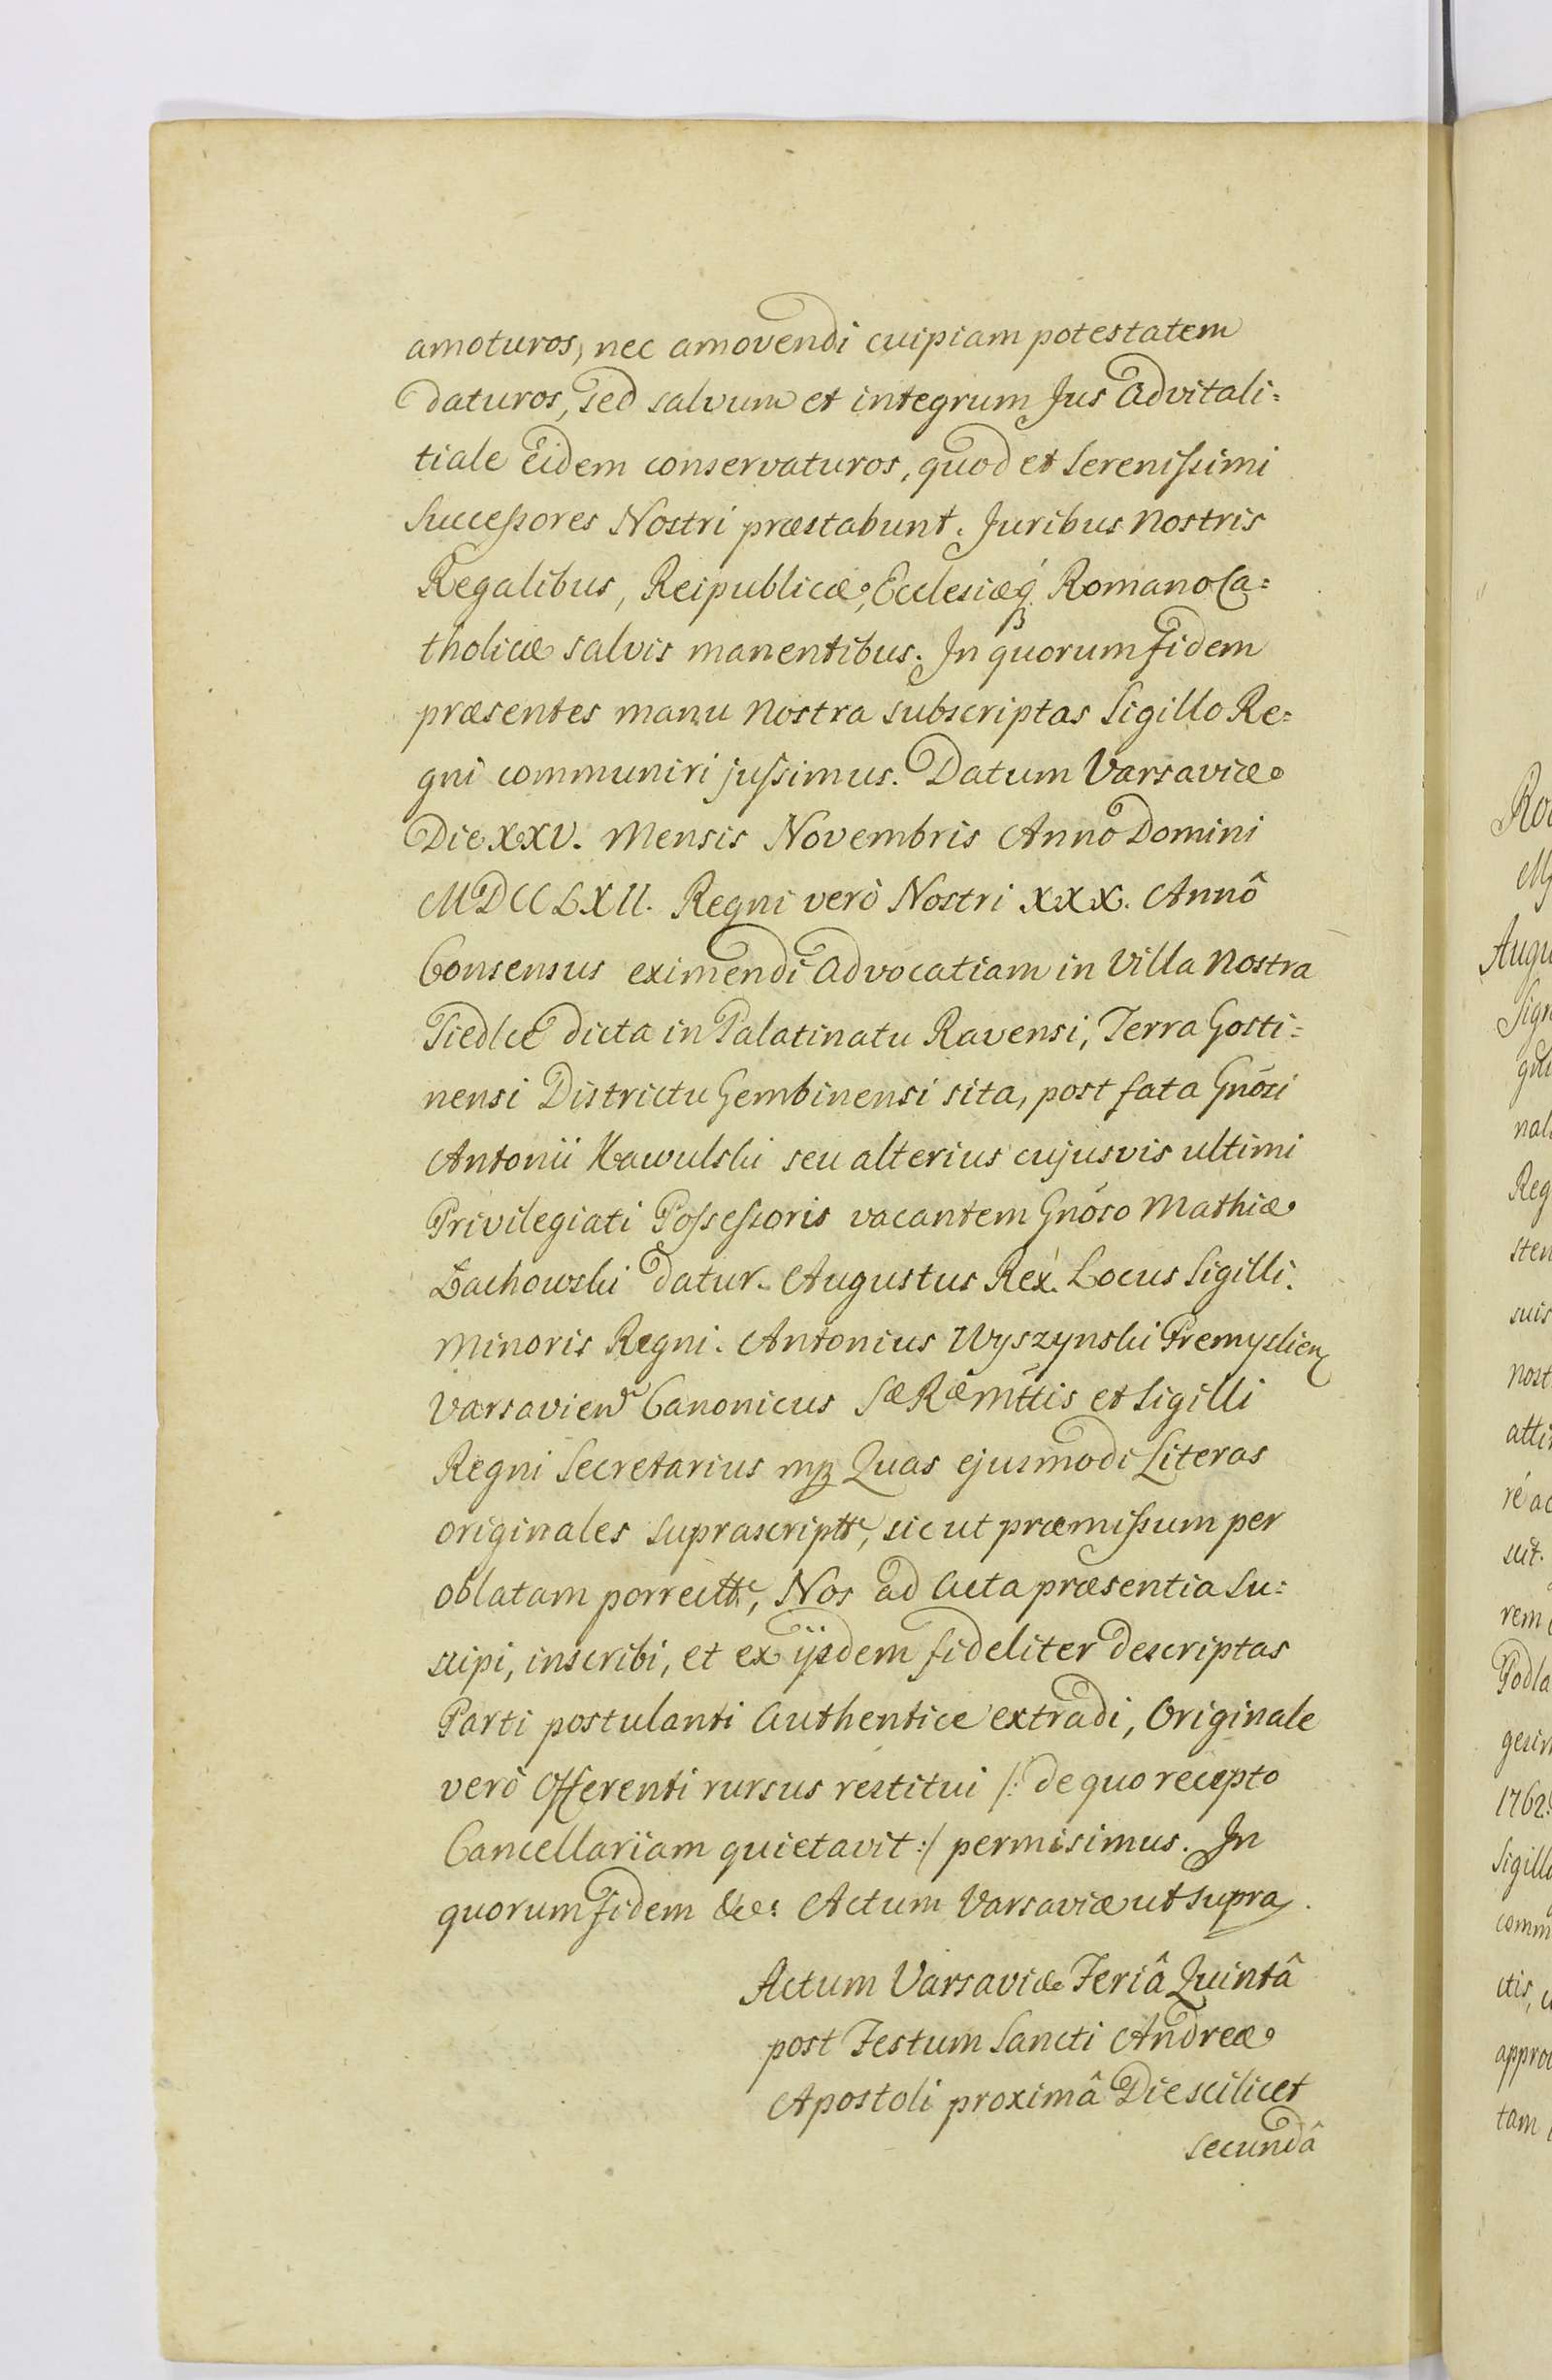 amoturos, nec amovendi cuipiam potestatem
daturos, sed salvum et integrum Jus advitali=
tiale Eidem conservaturos, quod et Serenissimi
Successores Nostri præstabunt. Juribus nostris
Regalibus, Reipublicæ, Ecclesiæq̃ Romano Ca=
tholicæ salvis manentibus. In quorum fidem
præsentes manu nostra subscriptas Sigillo Re=
gni communiri jussimus. Datum Varsaviæ
Die XXV. Mensis Novembris Anno Domini
MDCCLXII. Regni verò Nostri XXX. Annô
Consensus eximendi advocatiam in Villa nostra
Siedlce dicta in Palatinatu Ravensi, Terra Gosti=
nensi Districtu Gembinensi sita, post fata Gnõsi
Antonii Kawulski seu alterius cujusvis ultimi
Privilegiati Possessoris vacantem Gnõso Mathiæ
Łachowski datur. Augustus Rex. Locus Sigilli.
Minoris Regni. Antonius Wyszynski Premyslien
Varsavien Canonicus Sæ Ræ Mttis et Sigilli
Regni Secretarius mp Quas ejusmodi Literas
originales suprascriptt, sicut præmissum per
oblatam porrectt, Nos ad Acta præsentia su=
scipi, inscribi, et ex ijsdem fideliter descriptas
Parti postulanti authentice extradi, Originale
verò Offerenti rursus restitui /: de quo recepto
Cancellariam quietavit :/ permisimus. In
quorum fidem &c: Actum Varsaviæ ut supra.
Actum Varsaviæ Feriâ Quintâ
post Festum Sancti Andreæ
Apostoli proximâ Die scilicet
secundâ